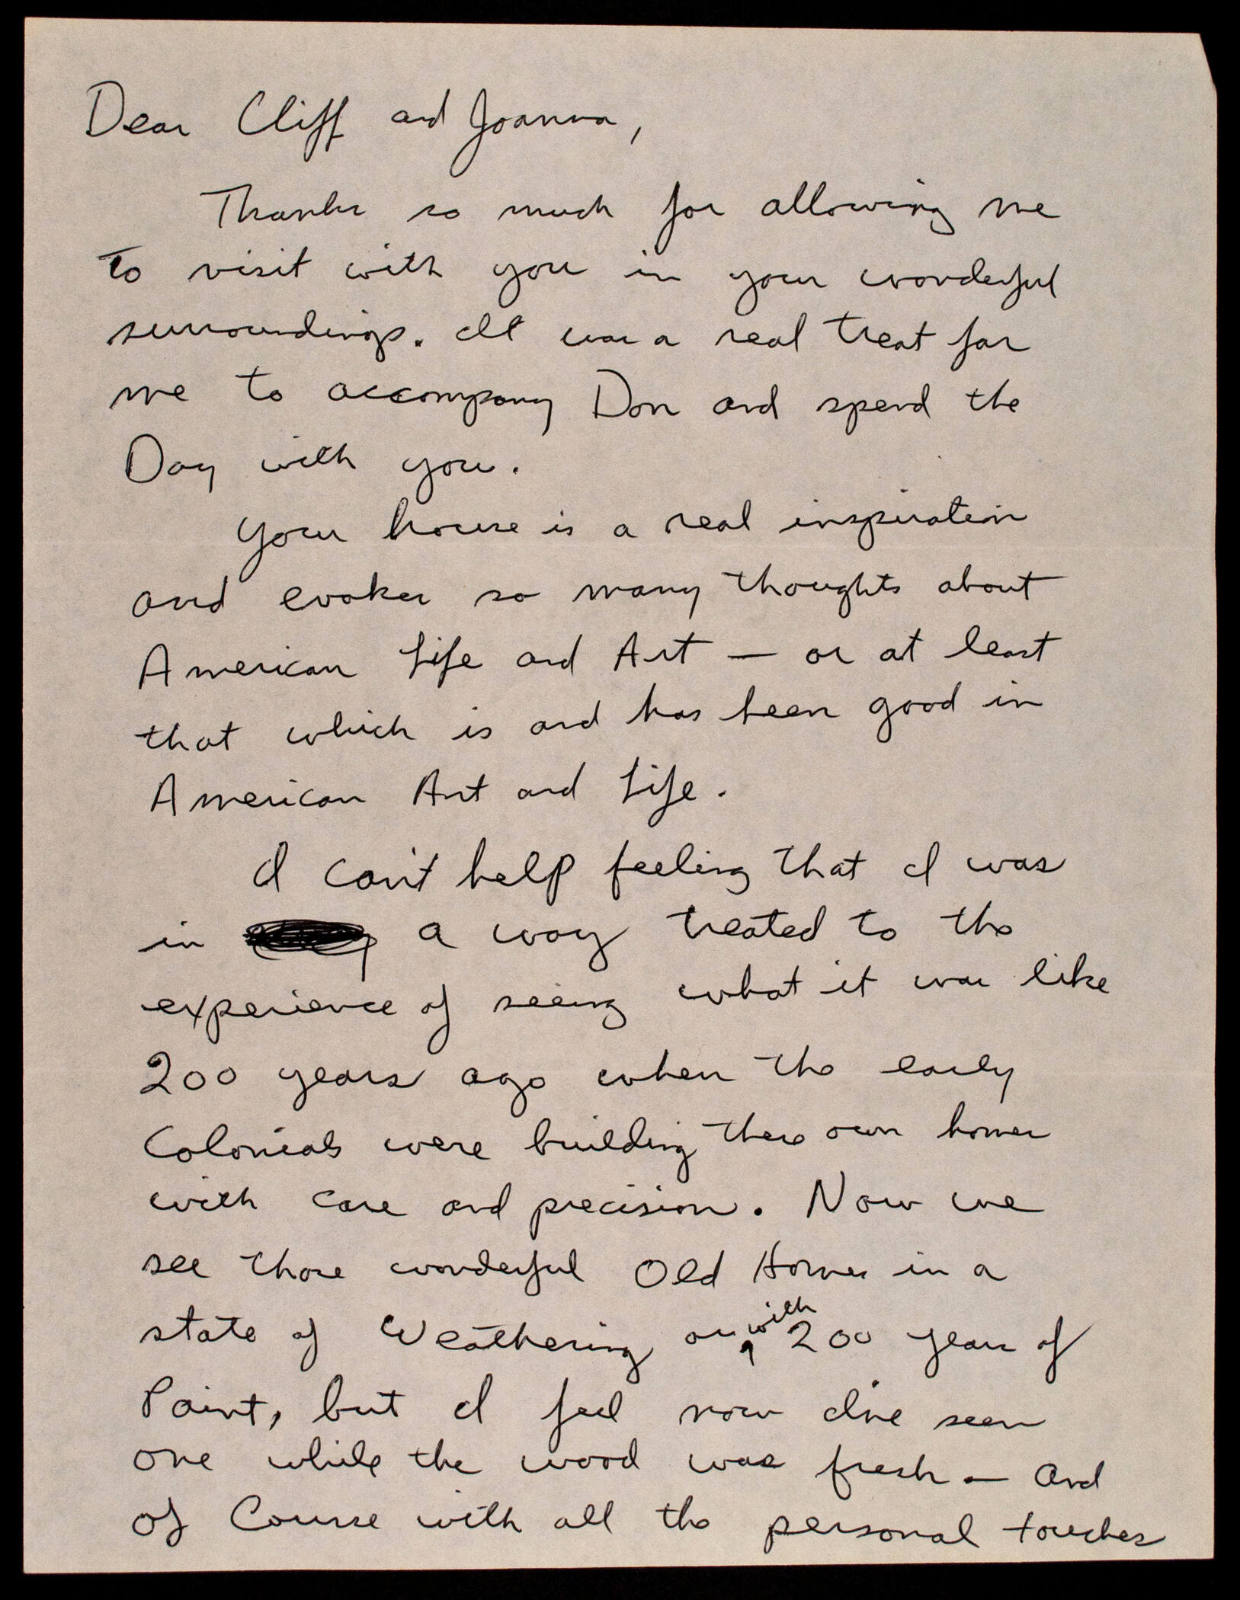 Dear Cliff and Joanna,
Thanks so much for allowing me
to visit with you in your wonderful
surroundings. It was a real treat for
me to accompany Don and spend the
Day with you.
Your house is a real inspiration
and evokes so many thoughts about
American Life and Art — or at least
that which is and has been good in
American Art and Life.
I can't help feeling that I was
in a way treated to the
experience of seeing what it was like
200 years ago when the early
Colonials were building there own homes
with care and precision. Now we
see those wonderful Old Homes in a
state of Weathering or with 200 years of
Paint, but I feel now I've seen
one while the wood was fresh — And
of Course with all the personal touches